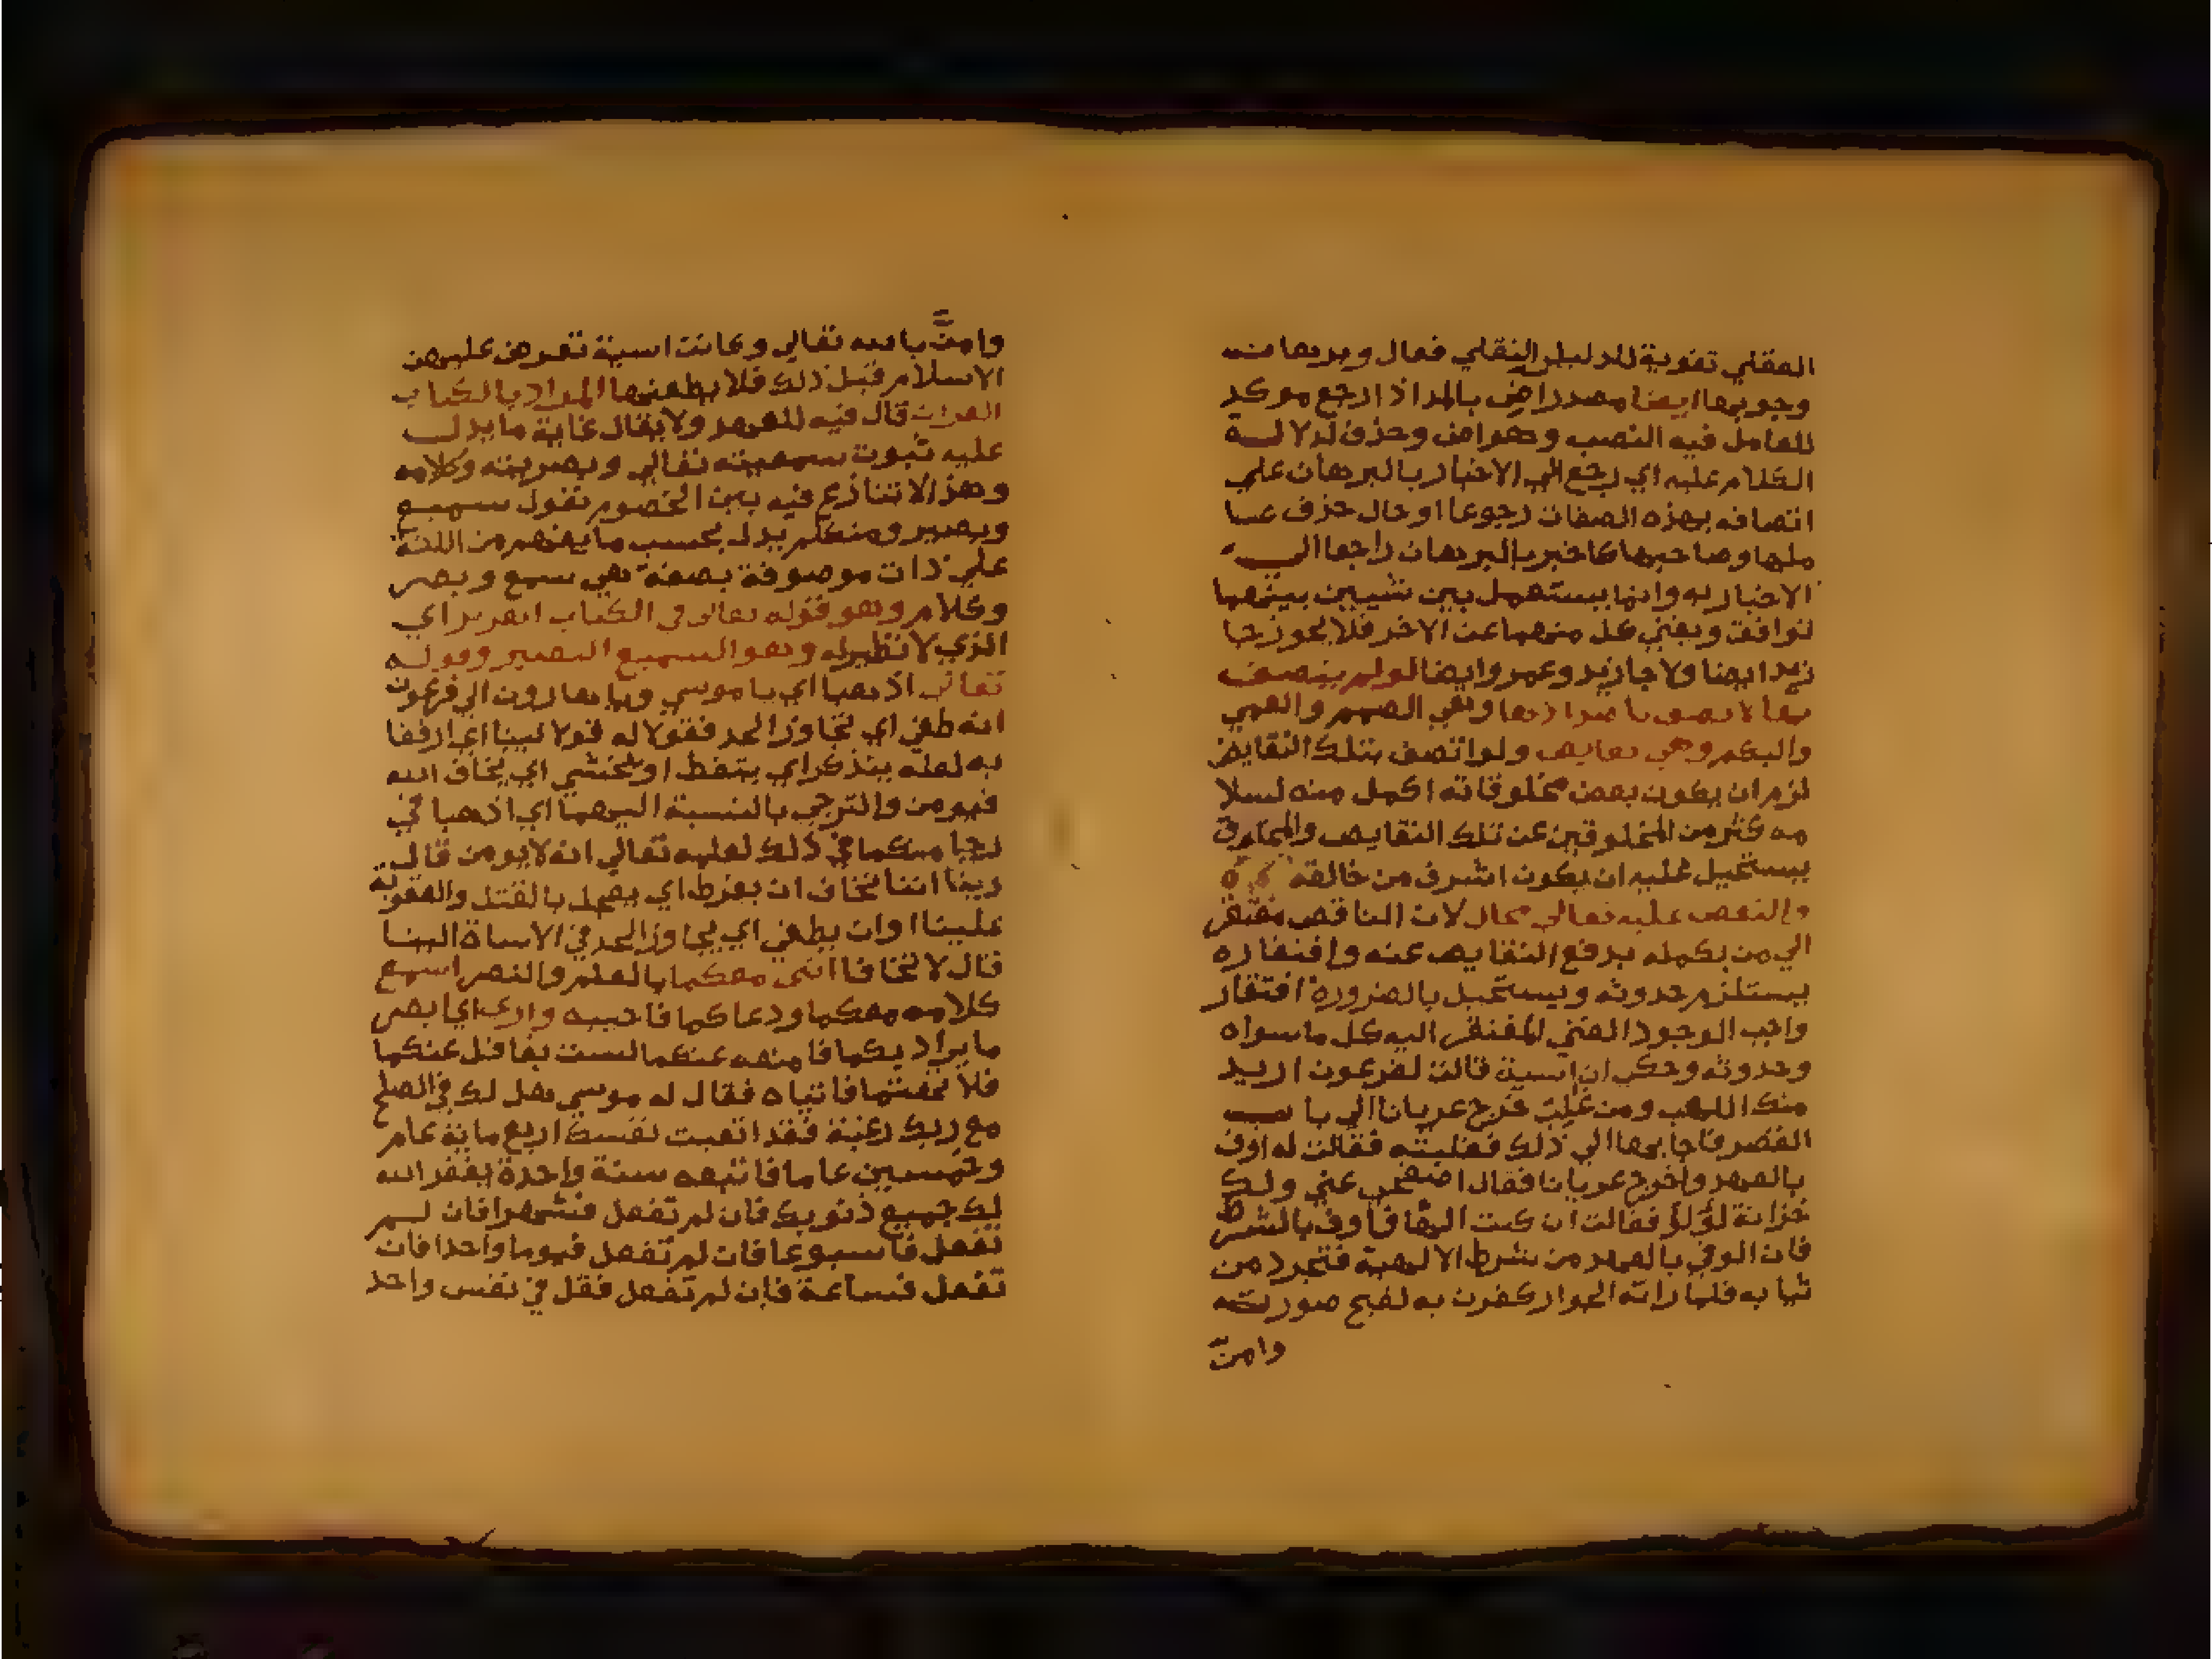 العقلي تقوية للدليل النقلي فقال وبرهان
وجوبها ايضا مصدر اض بالمد اذا رجع موكد
للعامل فيه النصب وهو اض وحذف لدلالة
الكلام عليه اي رجع الي الاخبار بالبرهان علي
اتصافه بهذه الصفات رجوعا او حال حذف عا
ملها وصاحبها كاخبر بالبرهان راجعا الي
الاخبار به وانما يستعمل بين شيين بينهما
توافق ويغني كل منهما عن الاخر فلا يجوز جا
زيد ايضا ولا جا زيد وعمر وايضا لو لم يتصف
بها لاتصف باضدادها وهي الصمم والعمي
والبكم وهي نقايص ولو اتصف بتلك النقايص
لزم ان يكون بعض مخلوقاته اكمل منه لسلا
مه كثر من المخلوقين عن تلك النقايص والمخلوق
يستحيل عليه ان يكون اشرف من خالقه
والنقص عليه تعالي محال لان الناقص مفتقر
الي من يكمله بدفع النقايص عنه وافتقاره
يستلزم حدوثه ويستحيل بالضرورة افتقار
واجب الوجود الغني المفتقر اليه كل ما سواه
وحدوثه وحكي ان اسية قالت لفرعون اريد
منك اللعب ومن غلب خرج عريانا الي باب
القصر فاجابها الي ذلك فغلبته فقالت له اوف
بالعهد واخرج عريانا فقال اصفحي عني ولك
خزانة لؤلؤ فقالت ان كنت الها فاوف بالشرط
فان الوفي بالعهد من شرط الالهية فتجرد من
ثيابه فلما راته الجوار كفرن به لقبح صورته
وامنّ
وامنّ بالله تعالي وكانت اسية تعرض عليهن
الاسلام قبل ذلك فلا يطعنها المراد بالكتاب
القران قال فيه للعهد ولا يقال غاية ما يدل
عليه ثبوت سمعيته تعالي وبصريته وكلامه
وهذا لا تنازع فيه بين الخصوم نقول سميع
وبصير ومتكلم يدل بحسب ما يفهم من اللغة
علي ذات موصوفة بصفة هي سمع وبصر
وكلام وهو قوله تعالي في الكتاب العزيز اي
الذي لا نظير له وهو السميع البصير وقوله
تعالي اذهبا اي يا موسي ويا هارون الي فرعون
انه طغي اي تجاوز الحد فقولا له قولا لينا اي ارفقا
به لعله يتذكر اي يتعظ او يخشي اي يخاف الله
فيومن والترجي بالنسبة اليهما اي اذهبا في
رجا منكما في ذلك لعلمه تعالي انه لا يومن قال
ربنا اننا نخاف ان يفرط اي يعجل بالقتل والعقوبة
علينا او ان يطغي اي يجاوز الحد في الاساة الينا
قال لا تخافا انني معكما بالعلم والنصر اسمع
كلامه معكما ودعاكما فاجيبه واري اي ابصر
ما يراد بكما فامنعه عنكما لست بغافل عنكما
فلا تهتما فاتياه فقال له موسي هل لك في الصلح
مع ربك رغبة فقد اتعبت نفسك اربع ماية عام
وخمسين عاما فاتبعه سنة واحدة يغفر الله
لك جميع ذنوبك فان لم تفعل فشهرا فان لم
تفعل فاسبوعا فان لم تفعل فيوما واحدا فان
تفعل فساعة فان لم تفعل فقل في نفس واحد